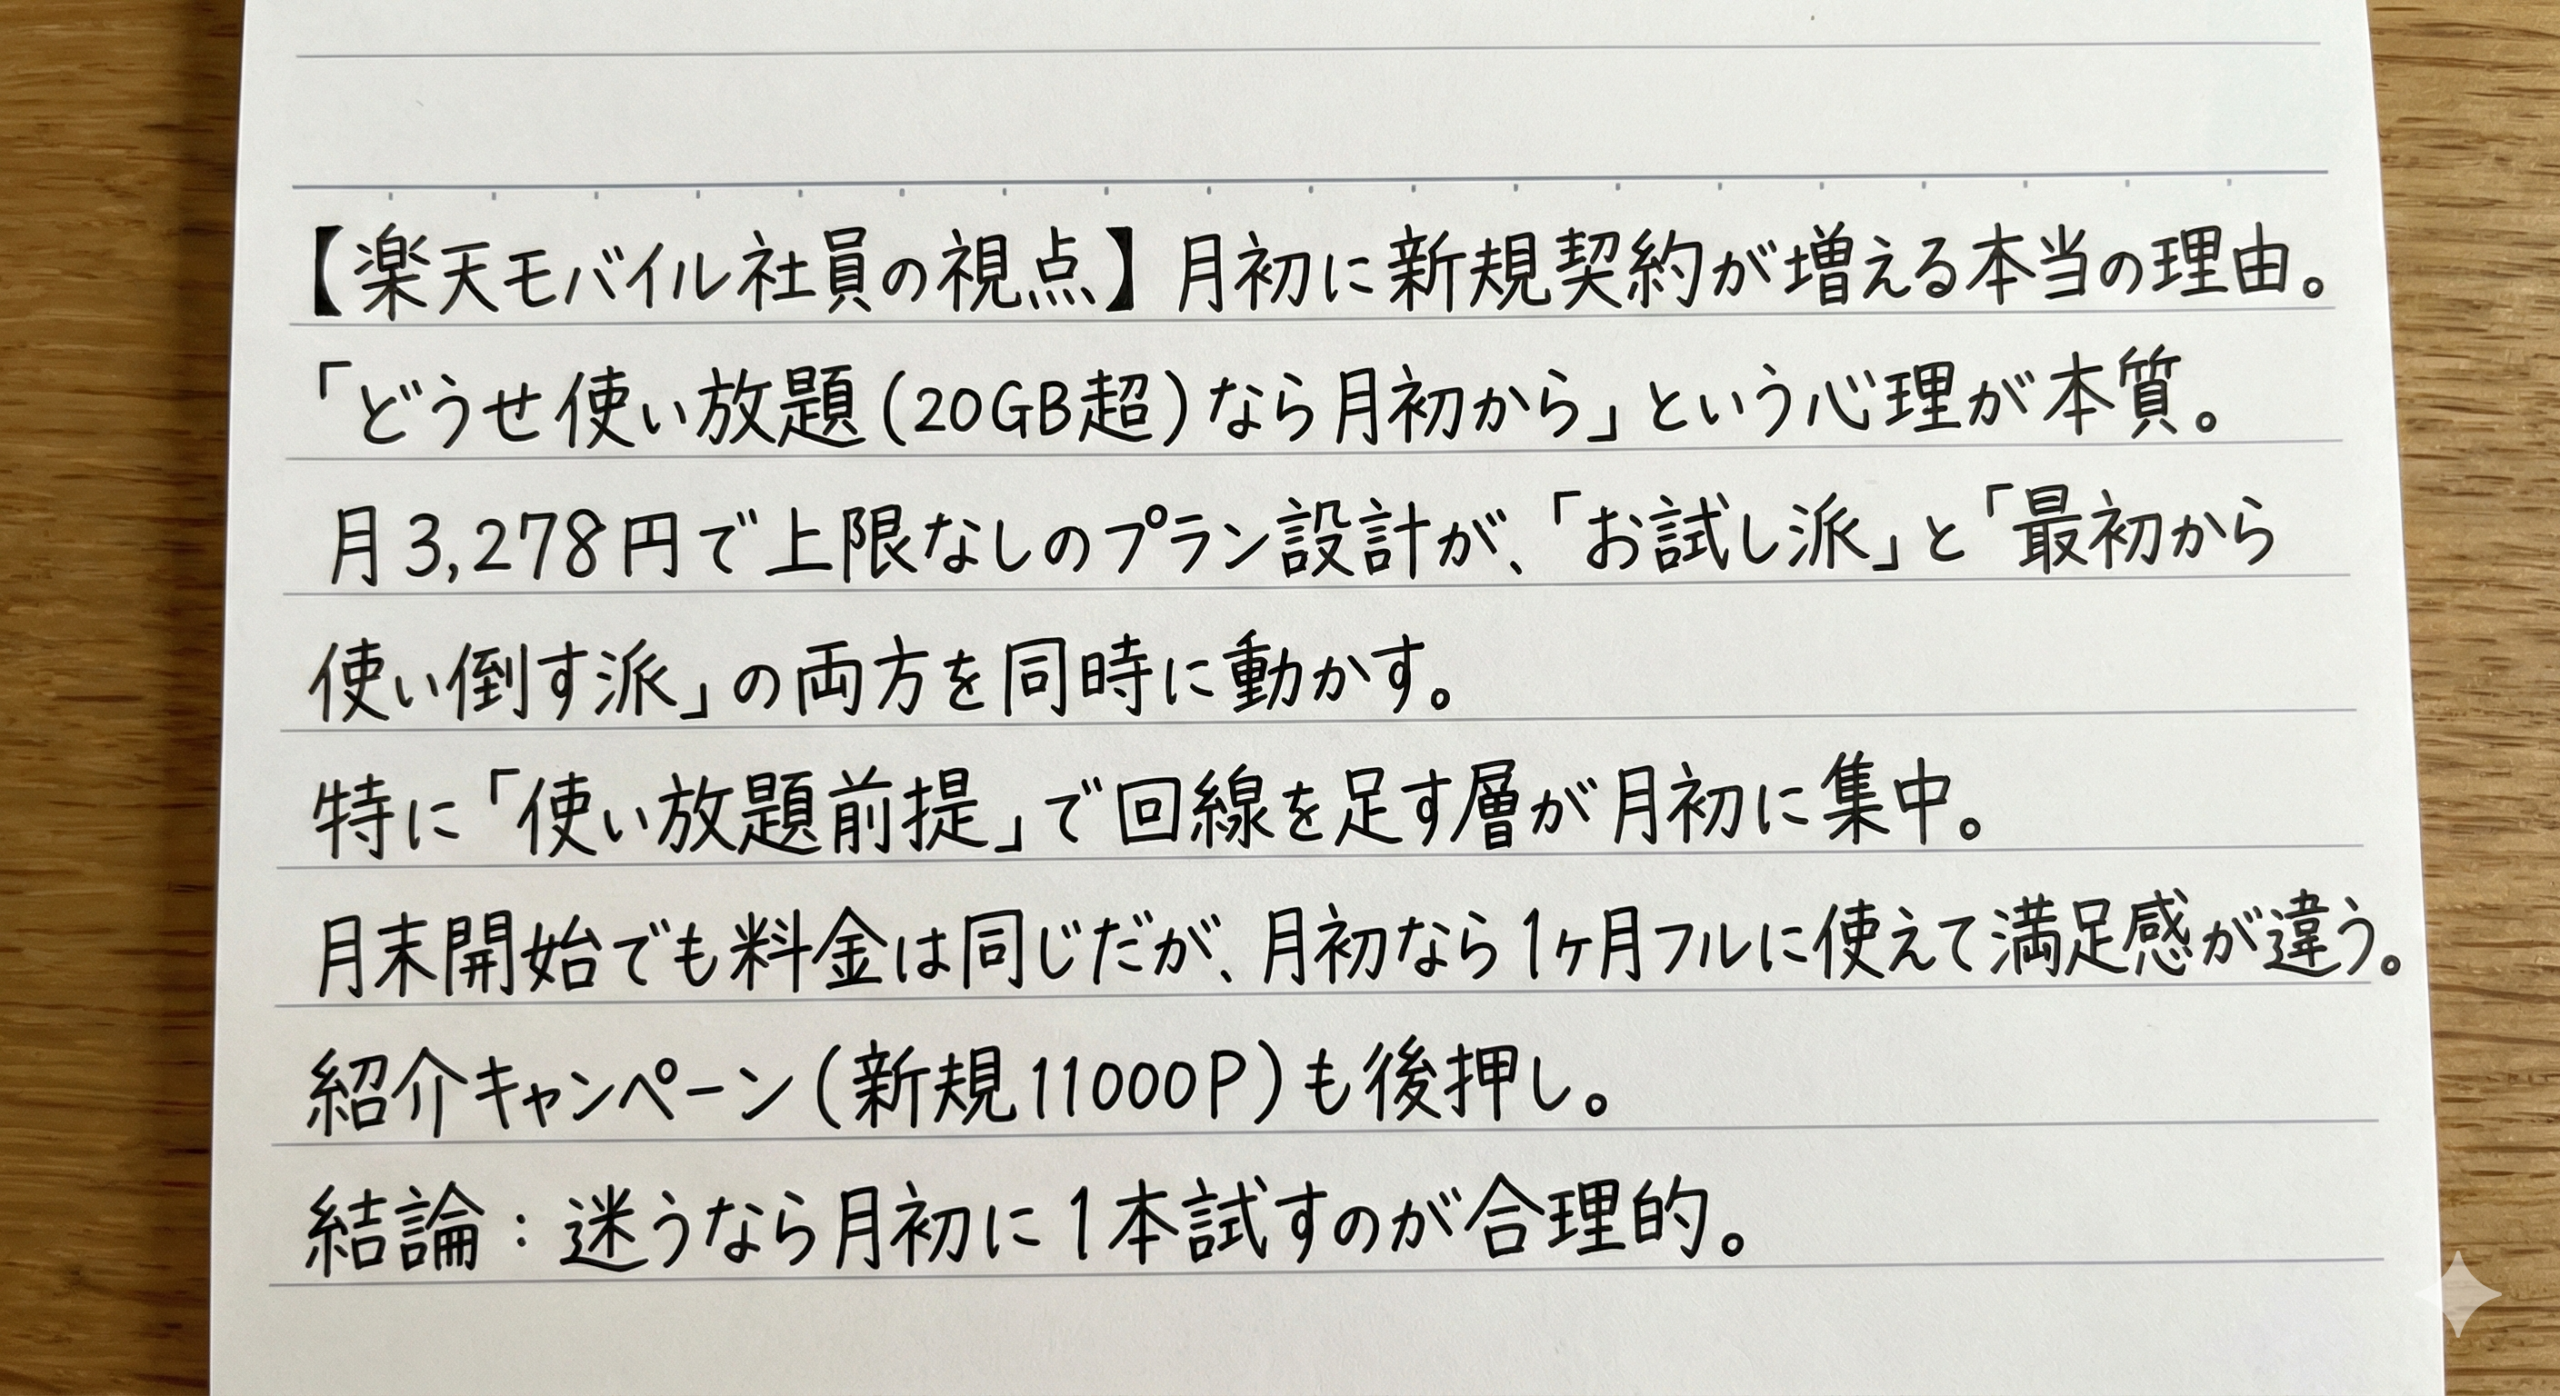 【楽天モバイル社員の視点】月初に新規契約が増える本当の理由。
「どうせ使い放題(20GB超)なら月初から」という心理が本質。
月3,278円で上限なしのプラン設計が、「お試し派」と「最初から
使い倒す派」の両方を同時に動かす。
特に「使い放題前提」で回線を足す層が月初に集中。
月末開始でも料金は同じだが、月初なら1ヶ月フルに使えて満足感が違う。
紹介キャンペーン(新規11000P)も後押し。
結論：迷うなら月初に1本試すのが合理的。